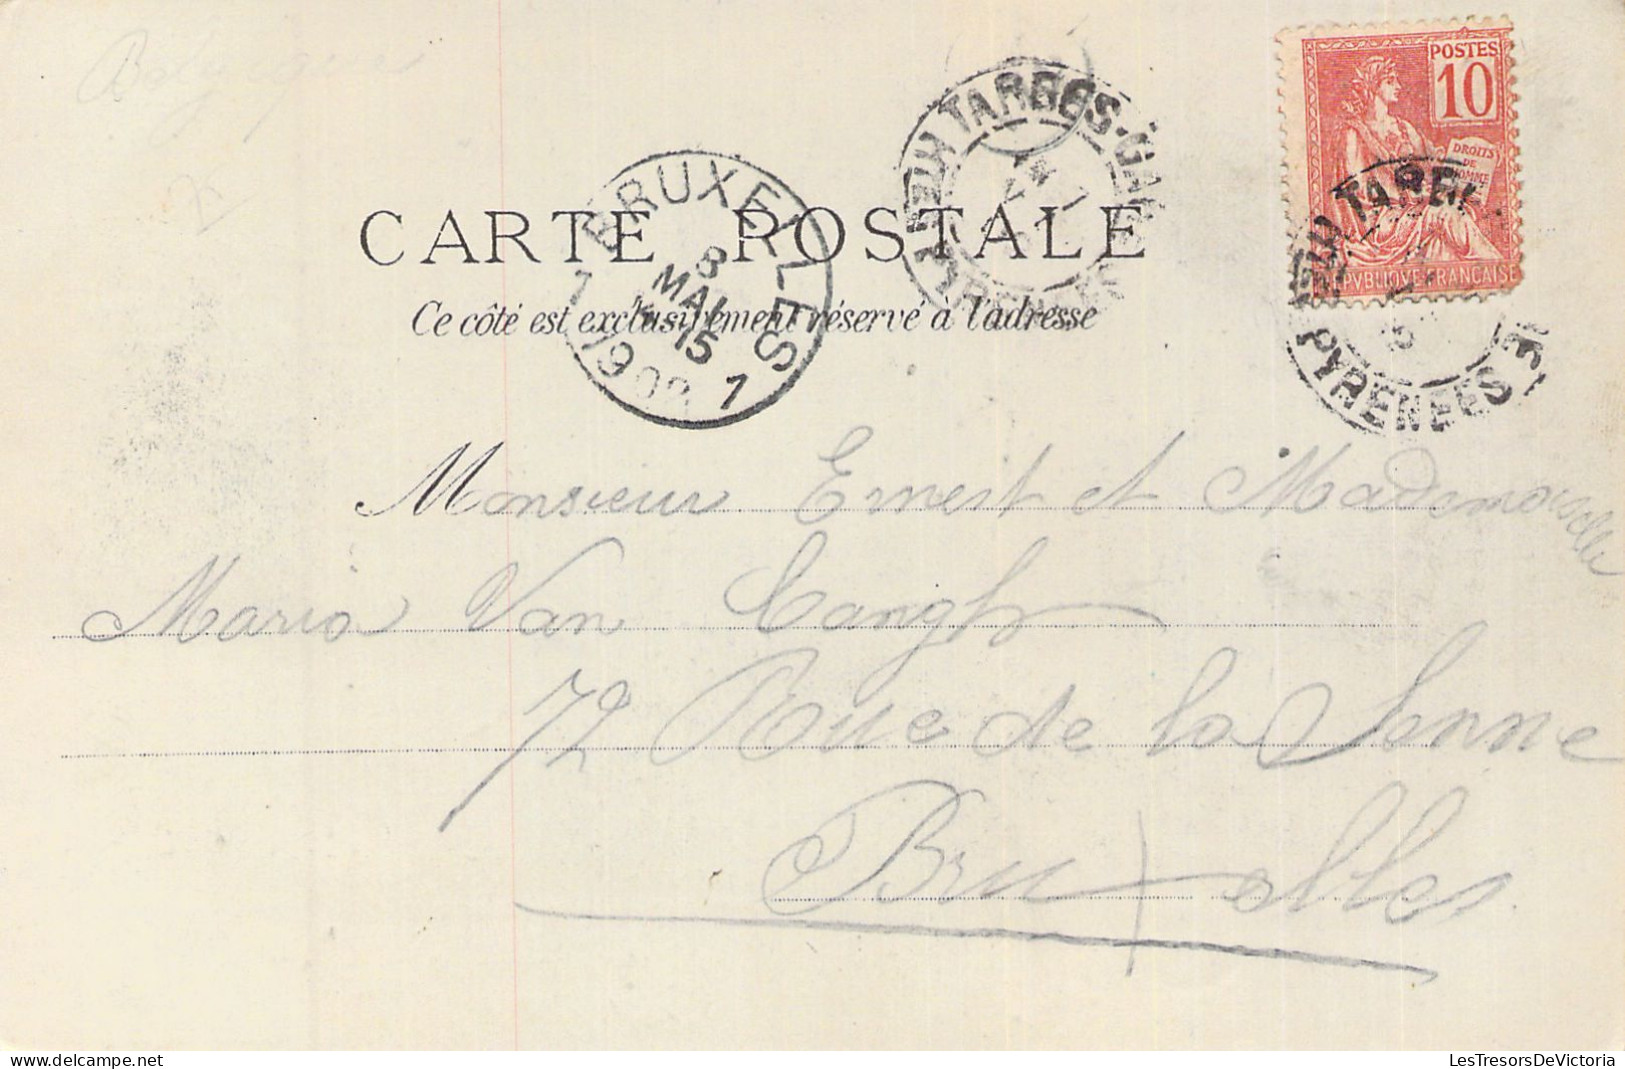 Belgique
POSTES
10
DROITS
DE
HOMME
RÉPVBLIQVE FRANÇAISE
TARBES-GARE
PYRENEES
TARBES
PYRENEES
BRUXELLES
8
MAI
15
1 1902 1
CARTE POSTALE
Ce côté est exclusivement réservé à l'adresse
Monsieur Ernest et Mademoiselle
Maria Van
72 Rue de la Senne
Bruxelles
LesTresorsDeVictoria
delcampe.net